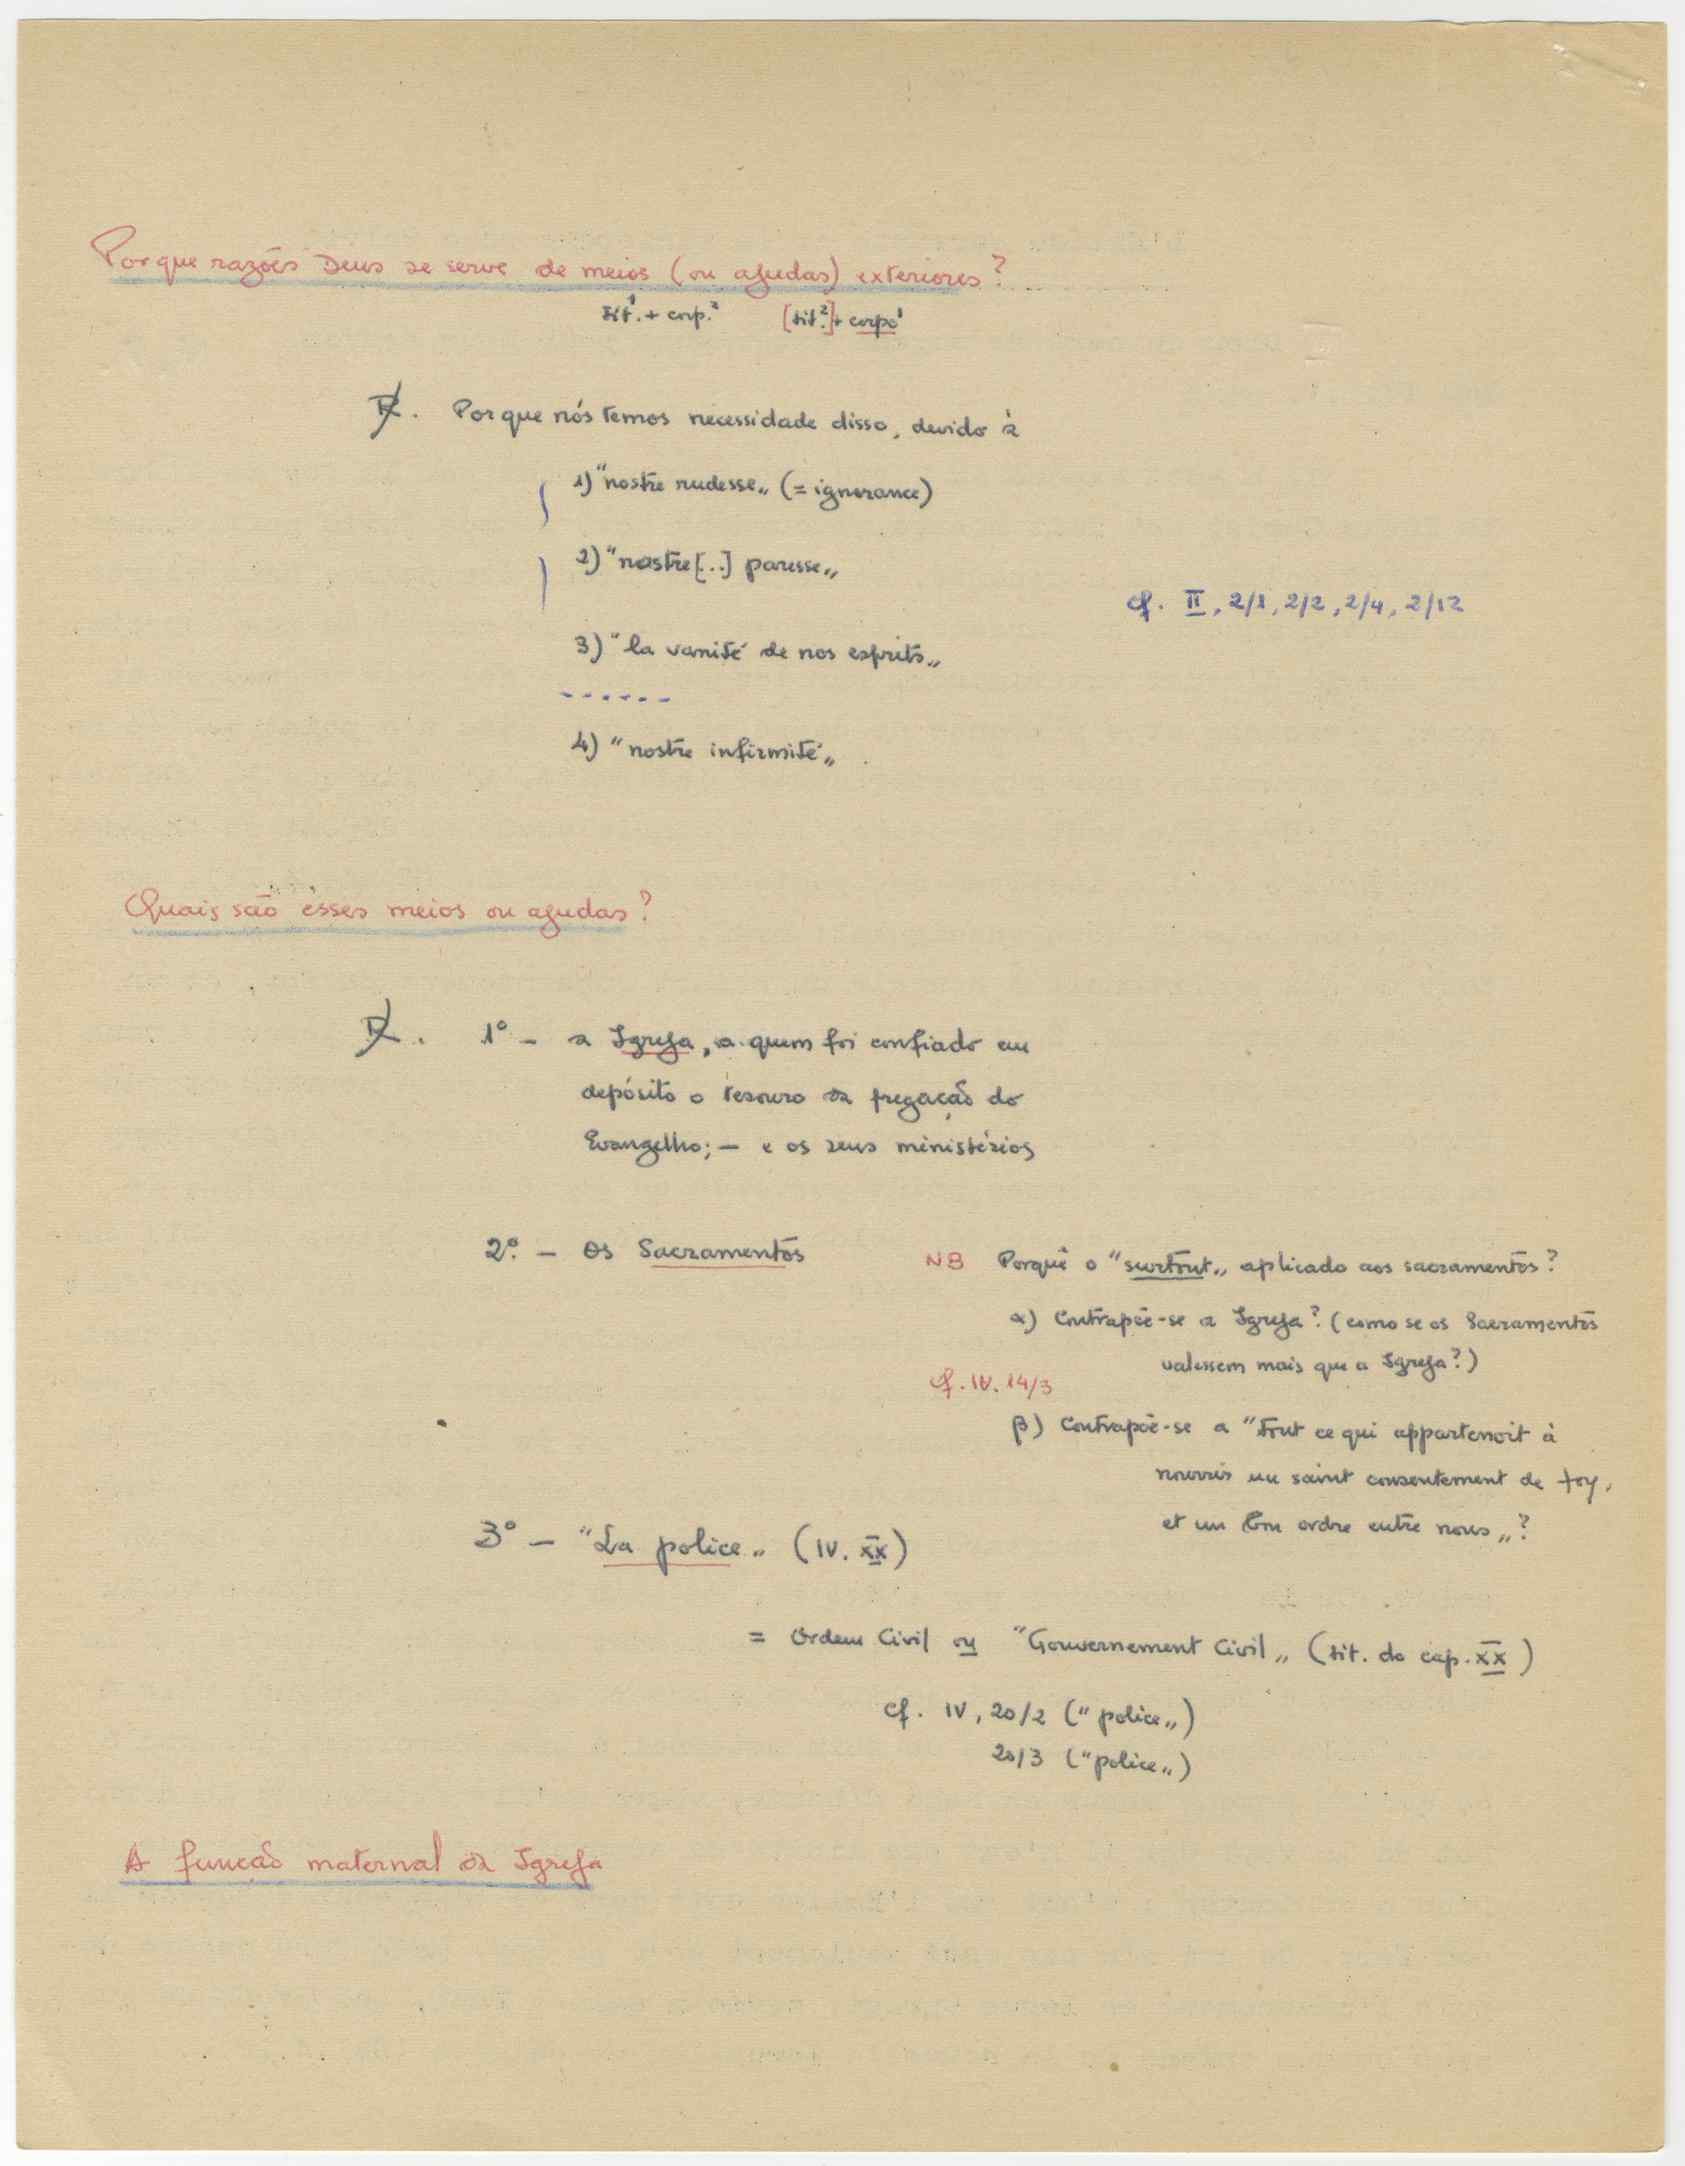 Porque razões Deus se serve de meios (ou ajudas) exteriores?
tít.¹ + corp.² [tít.²] + corpo¹
R. Porque nós temos necessidade disso, devido à
1) "nostre rudesse„ (= ignorance)
2) "nostre [..] paresse„
cf. II, 2/1, 2/2, 2/4, 2/12
3) "la vanité de nos esprits„
------
4) "nostre infirmité„.
Quais são esses meios ou ajudas?
R. 1º - a Igreja, a quem foi confiado em
depósito o tesouro da pregação do
Evangelho; — e os seus ministérios
2º. — Os Sacramentos
NB Porquê o "surtout„ aplicado aos sacramentos?
α) Contrapõe-se a Igreja? (como se os Sacramentos
valessem mais que a Igreja?)
cf. IV. 14/3
β) Contrapõe-se a "Tout ce qui appartenoit à
nourrir un saint consentement de foy,
et un bon ordre entre nous„?
3º — "La police„ (IV. XX)
= Ordem Civil ou "Gouvernement Civil„ (tít. do cap. XX)
cf. IV, 20/2 ("police„)
20/3 ("police„)
A função maternal da Igreja